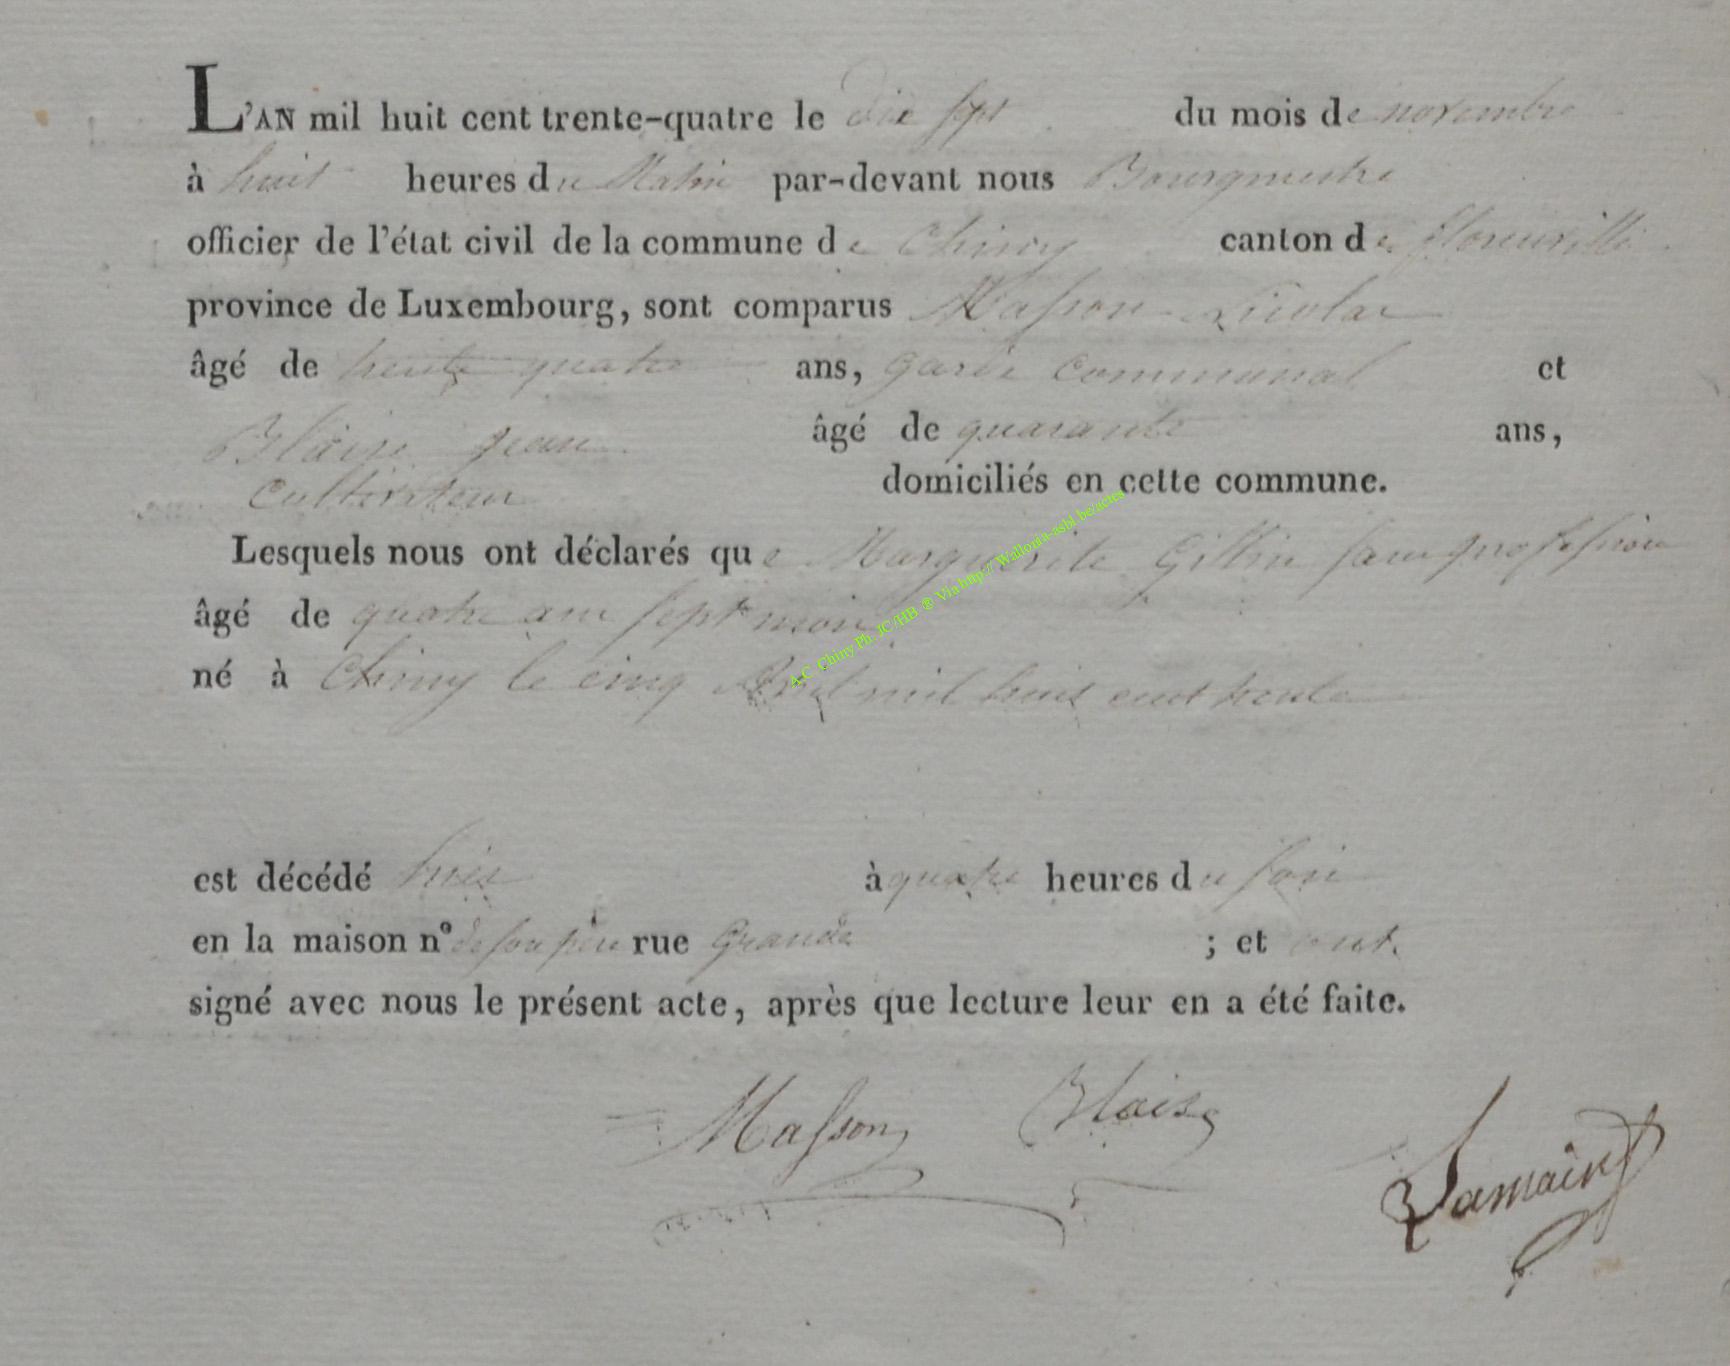 L'AN mil huit cent trente-quatre le dix sept du mois de novembre
à huit heures du Matin par-devant nous Bourgmestre
officier de l'état civil de la commune de Chiny canton de florenville
province de Luxembourg, sont comparus Masson Nicolas
âgé de trente quatre ans, garde communal et
Blaise jean âgé de quarante ans,
Cultivateur domiciliés en cette commune.
Lesquels nous ont déclarés que Marguerite Gillin sans profession
âgé de quatre ans sept mois
né à Chiny le cinq Avril mil huit cent trente
A.C. Chiny Ph. JC/HB ® Via http:// Wallonia-asbl.be/actes
est décédé hier à quatre heures du soir
en la maison n° de son père rue Grande ; et ont
signé avec nous le présent acte, après que lecture leur en a été faite.
Masson Blaise Lamain